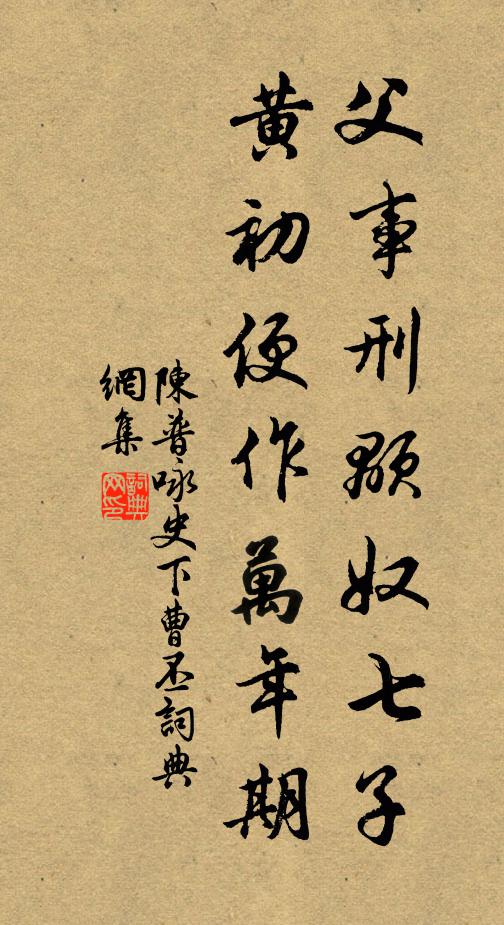 父事刑顒奴七子
黄初便作萬年期
陳普咏史下曹丕詞典
網集
詞典網印